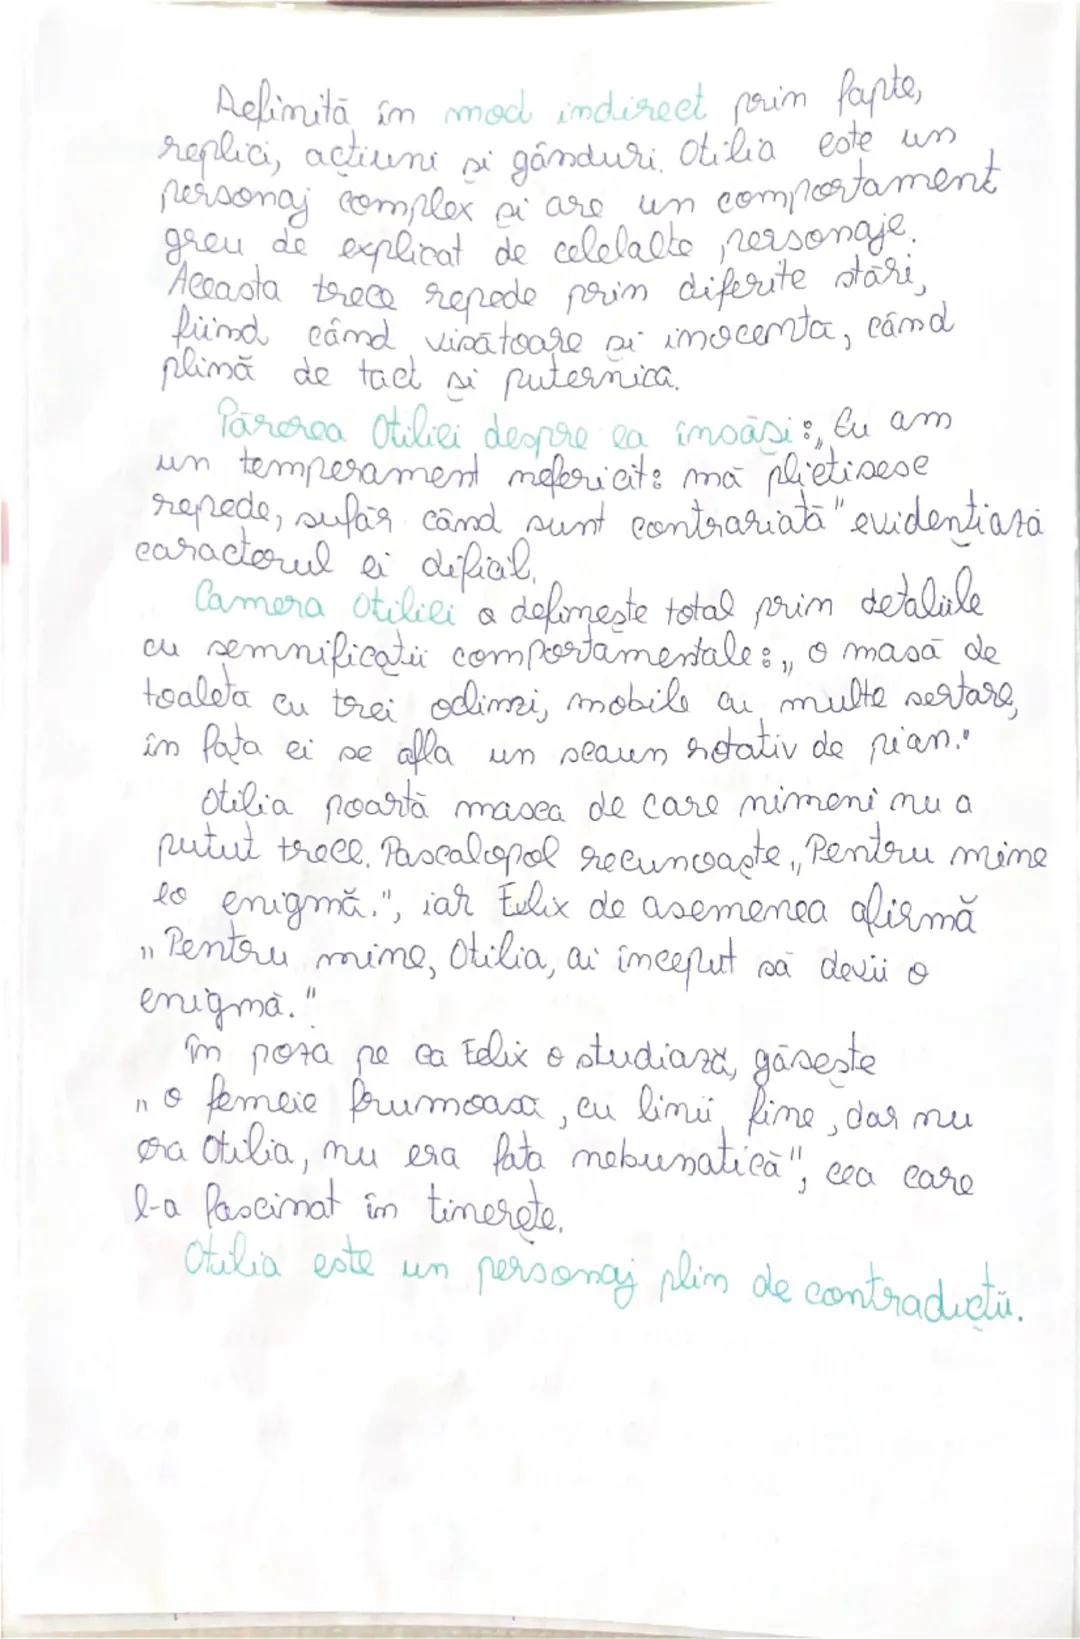 Definită în mod indirect prin fapte,
replici, acțiuni și gânduri, Otilia este un
personaj complex și are un comportament
greu de explicat de celelalte personaje.
Aceasta trece repede prin diferite stări,
fiind când visătoare si inocenta, când
plină de tact si puternica.
Părerea Otiliei despre ea însăsi: „Eu am
un temperament nefericit: mă plictisesc
repede, sufăr când sunt contrariată" evidențiază
caracterul ei dificil.
Camera Otiliei o definește total prim detaliile
cu semnificații comportamentale: „o masă de
toaleta cu trei oglinzi, mobile cu multe sertare,
în fața ei se afla un scaun rotativ de pian."
Otilia poartă masca de care nimeni nu a
putut trece. Pascalopol recunoaște „Pentru mine
e o enigmă.", iar Felix de asemenea afirmă
„Pentru mine, Otilia, ai început să devii o
enigmă."
În poza pe ca Felix o studiază, găsește
„o femeie frumoasă, cu linii fine, dar nu
era Otilia, nu era fata nebunatică", cea care
l-a fascinat în tinerețe.
Otilia este un personaj plin de contradicții.